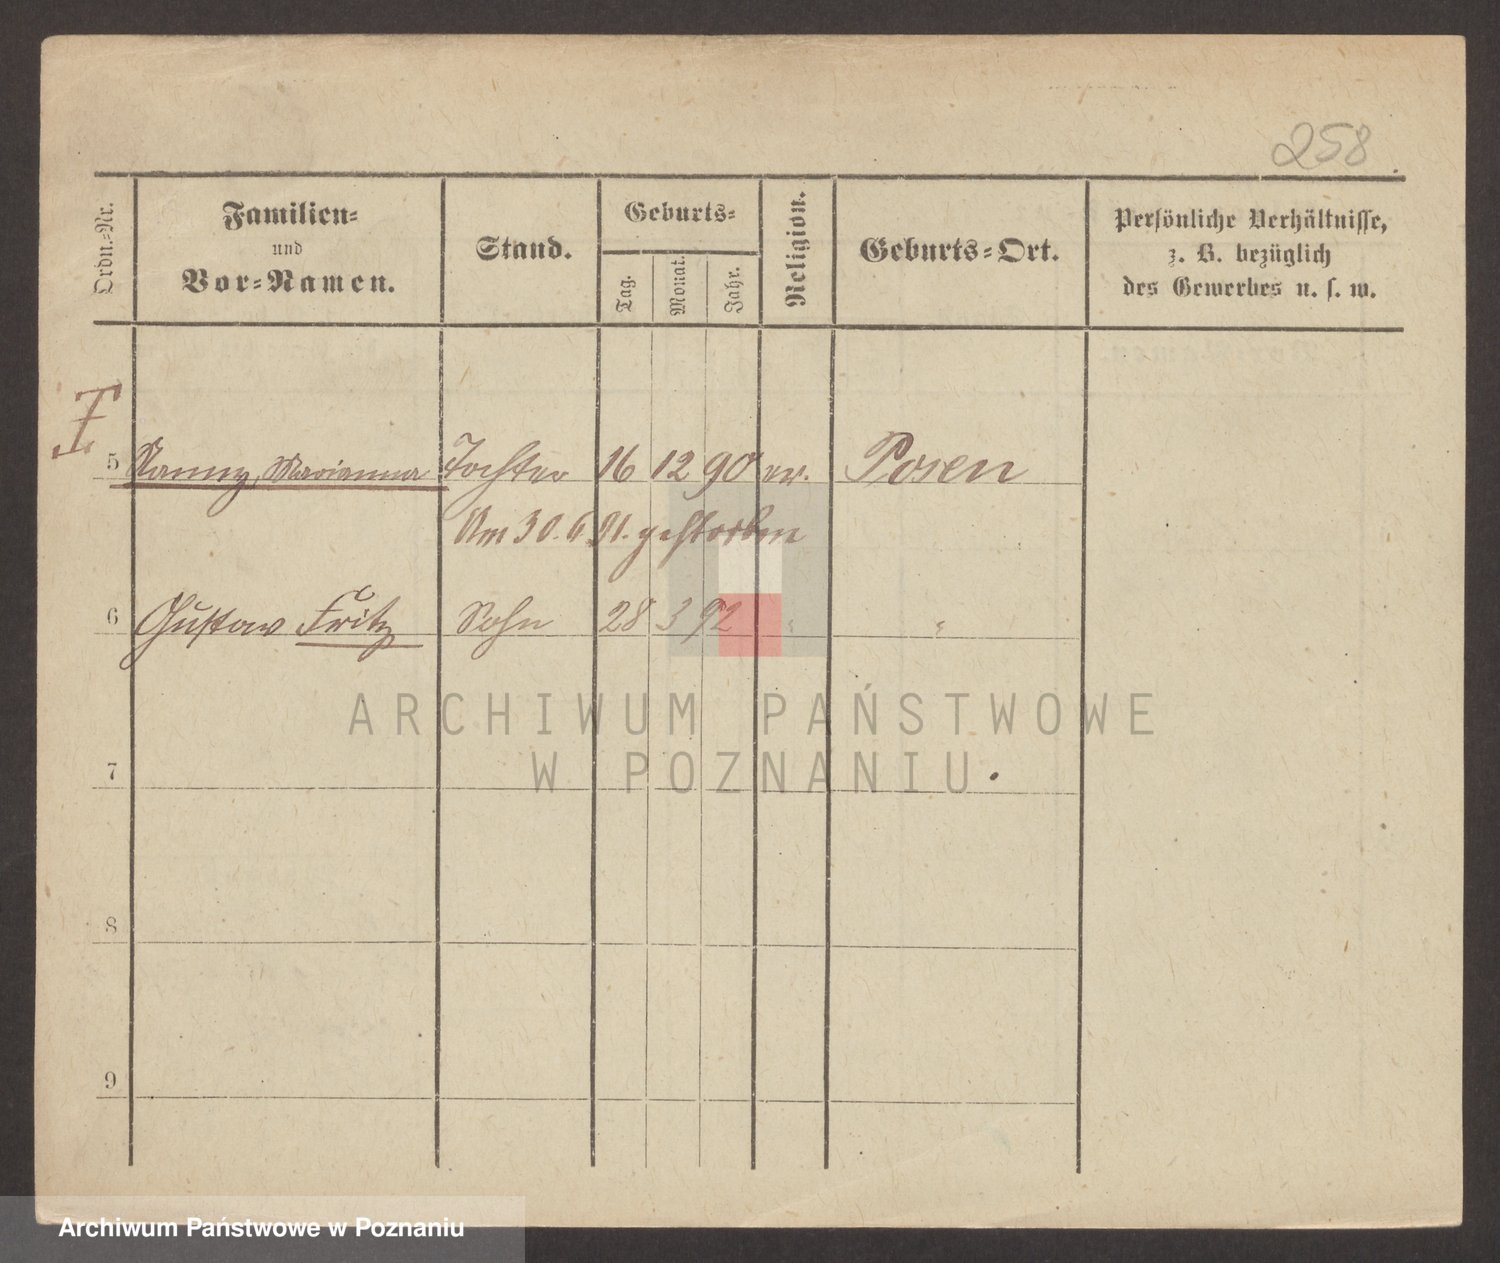 258
Ordn.-Nr.
Familien-
und
Vor-Namen.
Stand.
Geburts-
Tag.
Monat.
Jahr.
Religion.
Geburts-Ort.
Persönliche Verhältnisse,
z. B. bezüglich
des Gewerbes u. s. w.
5 Nanny, Marianna Tochter 16 12 90 ev. Posen
Am 30. 6. 91. gestorben
6 Gustav Fritz Sohn 28 3 92 " "
ARCHIWUM PAŃSTWOWE
W POZNANIU
7
8
9
Archiwum Państwowe w Poznaniu